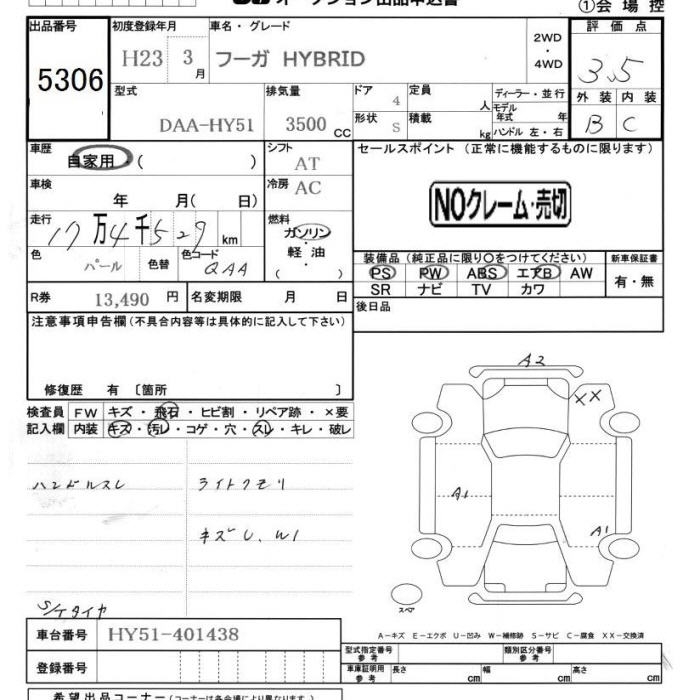 オークション出品申込書
①会場控
出品番号
5306
初度登録年月
H23 3月
車名・グレード
フーガ HYBRID
2WD
・
4WD
評価点
3.5
外装 内装
B C
型式
DAA-HY51
排気量
3500 CC
ドア
4
形状
S
定員
人
積載
kg
ディーラー・並行
モデル年式 年
ハンドル 左・右
車歴
自家用 ( )
シフト
AT
車検
年 月( 日)
冷房
AC
走行
17万4千529 km
燃料
ガソリン
・
軽油
( )
色
パール
色替
色コード
QAA
R券 13,490 円
名変期限 月 日
セールスポイント (正常に機能するものに限ります)
NOクレーム・売切
装備品 (純正品に限り○をつけてください)
PS PW ABS エアB AW
SR ナビ TV カワ
新車保証書
有・無
後日品
注意事項申告欄(不具合内容等は具体的に記入して下さい)
修復歴 有 〔箇所 〕
検査員記入欄
FW キズ・飛石・ヒビ割・リペア跡・×要
内装 キズ・汚レ・コゲ・穴・スレ・キレ・破レ
ハンドルスレ
ライトクモリ
キズU、W1
S/Tタイヤ
A2
XX
A1
A1
スペア
A−キズ E−エクボ U−凹み W−補修跡 S−サビ C−腐食 XX−交換済
車台番号 HY51-401438
登録番号
型式指定番号
参考
類別区分番号
参考
車庫証明用
参考
長さ cm
幅 cm
高さ cm
希望出品コーナー(コーナーは各会場により異なります。)